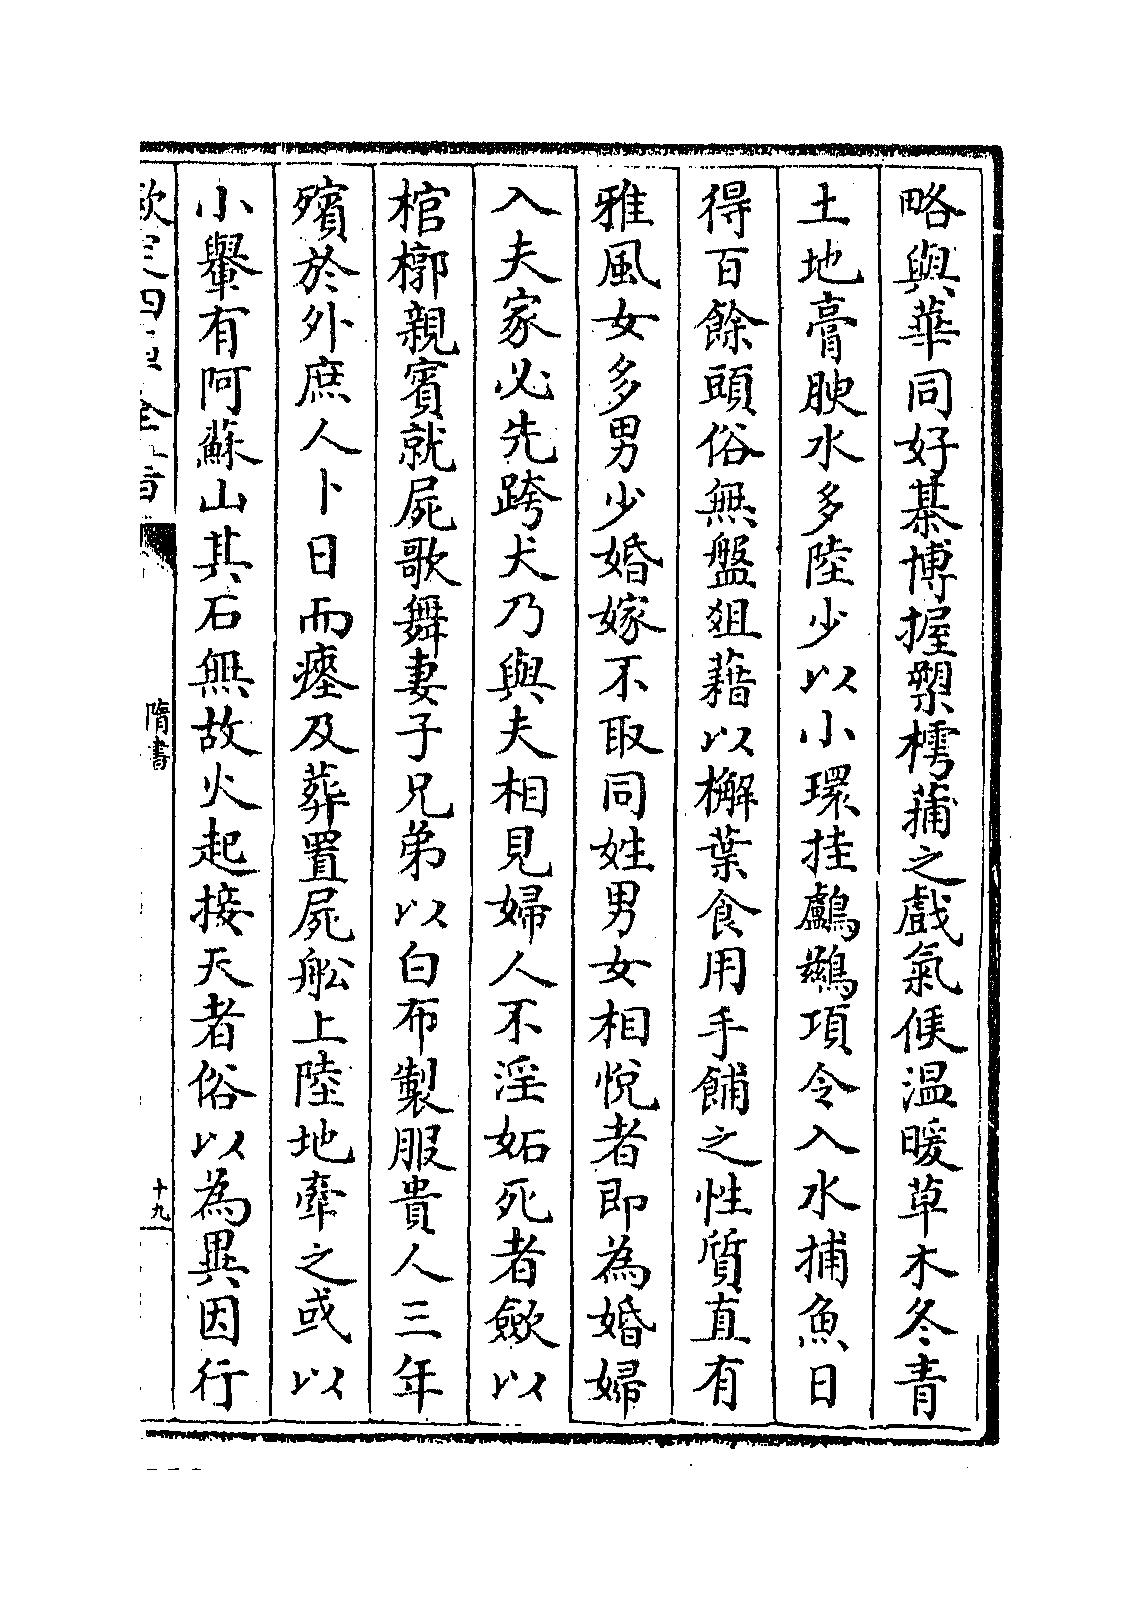 略與華同好棊博握槊樗蒱之戲氣候温暖草木冬青
土地膏腴水多陸少以小環挂鸕鷀項令入水捕魚日
得百餘頭俗無盤俎藉以檞葉食用手餔之性質直有
雅風女多男少婚嫁不取同姓男女相悅者即為婚婦
入夫家必先跨犬乃與夫相見婦人不淫妬死者斂以
棺槨親賓就屍歌舞妻子兄弟以白布製服貴人三年
殯於外庶人卜日而瘞及葬置屍舩上陸地牽之或以
小轝有阿蘇山其石無故火起接天者俗以為異因行
欽定四庫全書
隋書
十九